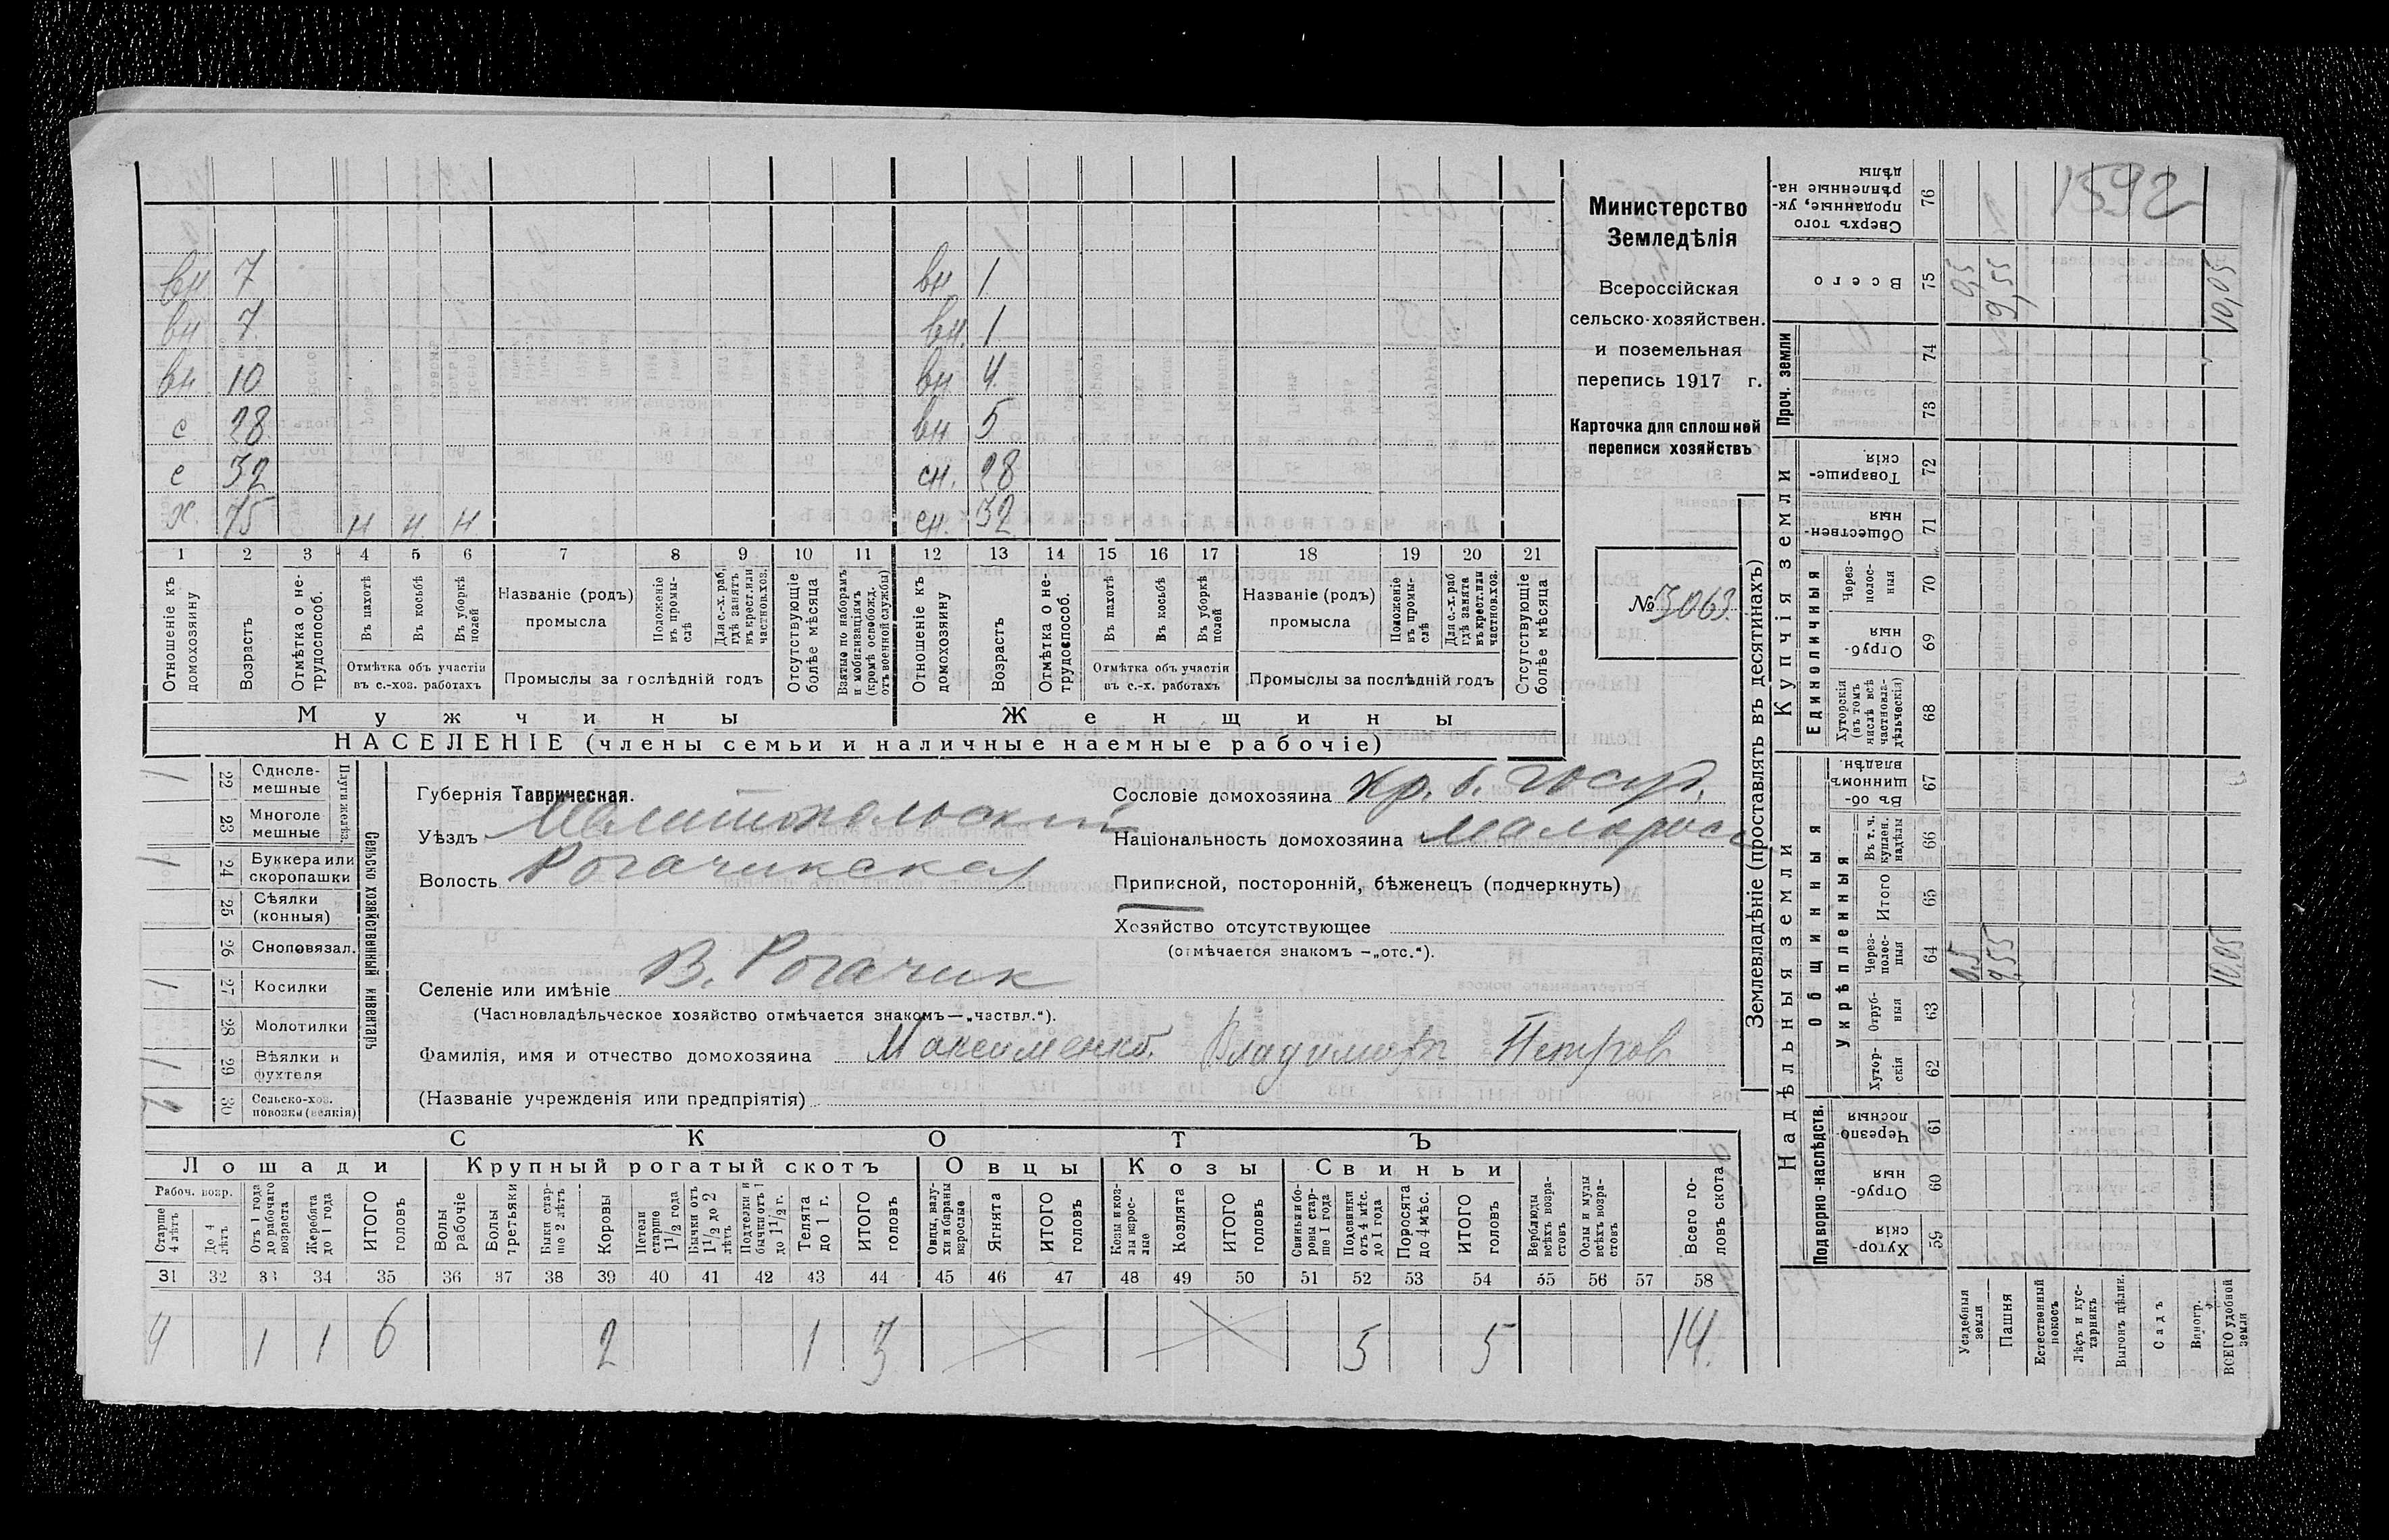 вн 7 вн 1
вн 7. вн. 1
вн. 10 вн 4.
с 28 вн 5
с 32 сн. 28
х. 75 н н. н сн. 32
1 2 3 4 5 6 7 8 9 10 11 12 13 14 15 16 17 18 19 20 21
Отношеніе къ домохозяину
Возрастъ
Отмѣтка о не-трудоспособ.
Въ пахотѣ
Въ косьбѣ
Въ уборкѣ полей
Отмѣтка объ участіи въ с.-хоз. работахъ
Названіе (родъ) промысла
Положеніе въ промы-слѣ
Для с.-х. раб., гдѣ занятъ въ крест. или частнов. хоз.
Промыслы за послѣдній годъ
Отсутствующіе болѣе мѣсяца
Взятые по наборамъ и мобилизаціямъ (кромѣ освобожд. отъ военной службы)
Отношеніе къ домохозяину
Возрастъ
Отмѣтка о не-трудоспособ.
Въ пахотѣ
Въ косьбѣ
Въ уборкѣ полей
Отмѣтка объ участіи въ с.-х. работахъ
Названіе (родъ) промысла
Положеніе въ промы-слѣ
Для с.-х. раб гдѣ занята въ крест. или частнов. хоз.
Промыслы за послѣдній годъ
Отсутствующіе болѣе мѣсяца
Мужчины Женщины
НАСЕЛЕНІЕ (члены семьи и наличные наемные рабочіе)
Министерство
Земледѣлія
Всероссійская
сельско-хозяйствен.
и поземельная
перепись 1917 г.
Карточка для сплошной
переписи хозяйствъ
№ 3063.
1 22 Одноле-мешные
23 Многоле мешные
Плуги желѣз.
1 24 Буккера или скоропашки
25 Сѣялки (конныя)
26 Сноповязал.
1 27 Косилки
28 Молотилки
1 29 Вѣялки и фухтеля
2 30 Сельско-хоз. повозки (всякія)
Сельско хозяйственный инвентарь
Губернія Таврическая.
Уѣздъ Мелитопольскій
Волость Рогачикская
Сословіе домохозяина кр. б. госуд.
Національность домохозяина малоросс
Приписной, посторонній, бѣженецъ (подчеркнуть)
Хозяйство отсутствующее
(отмѣчается знакомъ –„отс.“).
Селеніе или имѣніе В. Рогачик
(Частновладѣльческое хозяйство отмѣчается знакомъ—„частвл.“).
Фамилія, имя и отчество домохозяина Максименко. Владимѣр Петров
(Названіе учрежденія или предпріятія)
СКОТЪ
Лошади Крупный рогатый скотъ Овцы Козы Свиньи
Рабоч. возр.
Старше 4 лѣтъ
До 4 лѣтъ
Отъ 1 года до рабочаго возраста
Жеребята до 1 года
ИТОГО головъ
Волы рабочіе
Волы третьяки
Быки стар-ше 2 лѣтъ
Коровы
Нетели старше 1 1/2 года
Бычки отъ 1 1/2 до 2 лѣтъ
Подтелки и бычки отъ 1 до 1 1/2 г.
Телята до 1 г.
ИТОГО головъ
Овцы, валу-хи и бараны взрослые
Ягнята
ИТОГО головъ
Козы и коз-лы взрос-лые
Козлята
ИТОГО головъ
Свиньи и бо-ровы стар-ше 1 года
Подсвинки отъ 4 мѣс. до 1 года
Поросята до 4 мѣс.
ИТОГО головъ
Верблюды всѣхъ возра-стовъ
Ослы и мулы всѣхъ возра-стовъ
Всего го-ловъ скота
31 32 33 34 35 36 37 38 39 40 41 42 43 44 45 46 47 48 49 50 51 52 53 54 55 56 57 58
4 1 1 6 2 1 3 5 5 14.
Землевладѣніе (проставлять въ десятинахъ)
Купчія земли
Надѣльныя земли
Проч. земли
Единоличныя
Общинныя
Укрѣпленныя
Подворно-наслѣдств.
Сверхъ того проданные, ук-рѣпленные на-дѣлы 76 1592
Всего 75 0,5 9,55 10,05
74
73
Товарище-скія 72
Обществен-ныя 71
Через-полос-ныя 70
Отруб-ныя 69
Хуторскія (въ томъ числѣ всѣ частновла-дѣльческія) 68
Въ об-щинномъ владѣн. 67
Въ т. ч. куплен. надѣлы 66
Итого 65
Через-полос-ныя 64 0.5 9,55 10.05
Отруб-ныя 63
Хутор-скія 62
Черезпо-лосныя 61
Отруб-ныя 60
Хутор-скія 59
Усадебныя земли
Пашня
Естественный покосъ
Лѣсъ и кус-тарникъ
Выгонъ цѣлин.
Садъ
Виногр.
ВСЕГО удобной земли